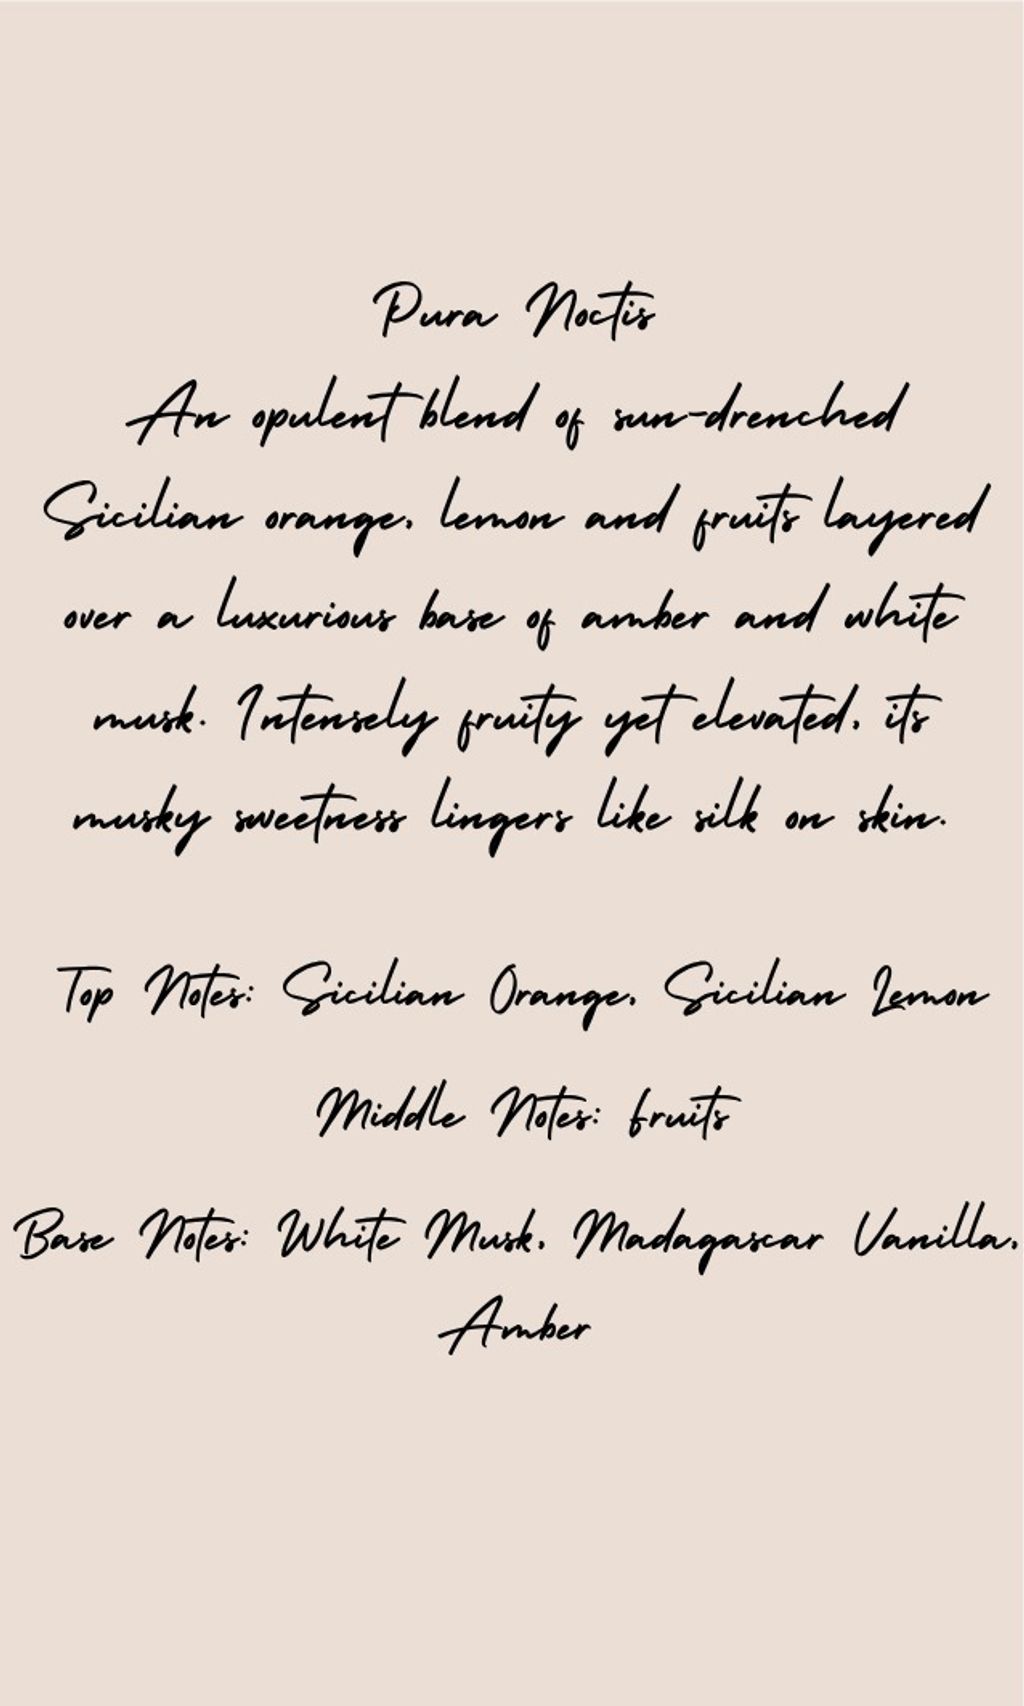 Pura Noctis
An opulent blend of sun-drenched
Sicilian orange, lemon and fruits layered
over a luxurious base of amber and white
musk. Intensely fruity yet elevated, its
musky sweetness lingers like silk on skin.
Top Notes: Sicilian Orange, Sicilian Lemon
Middle Notes: fruits
Base Notes: White Musk, Madagascar Vanilla,
Amber